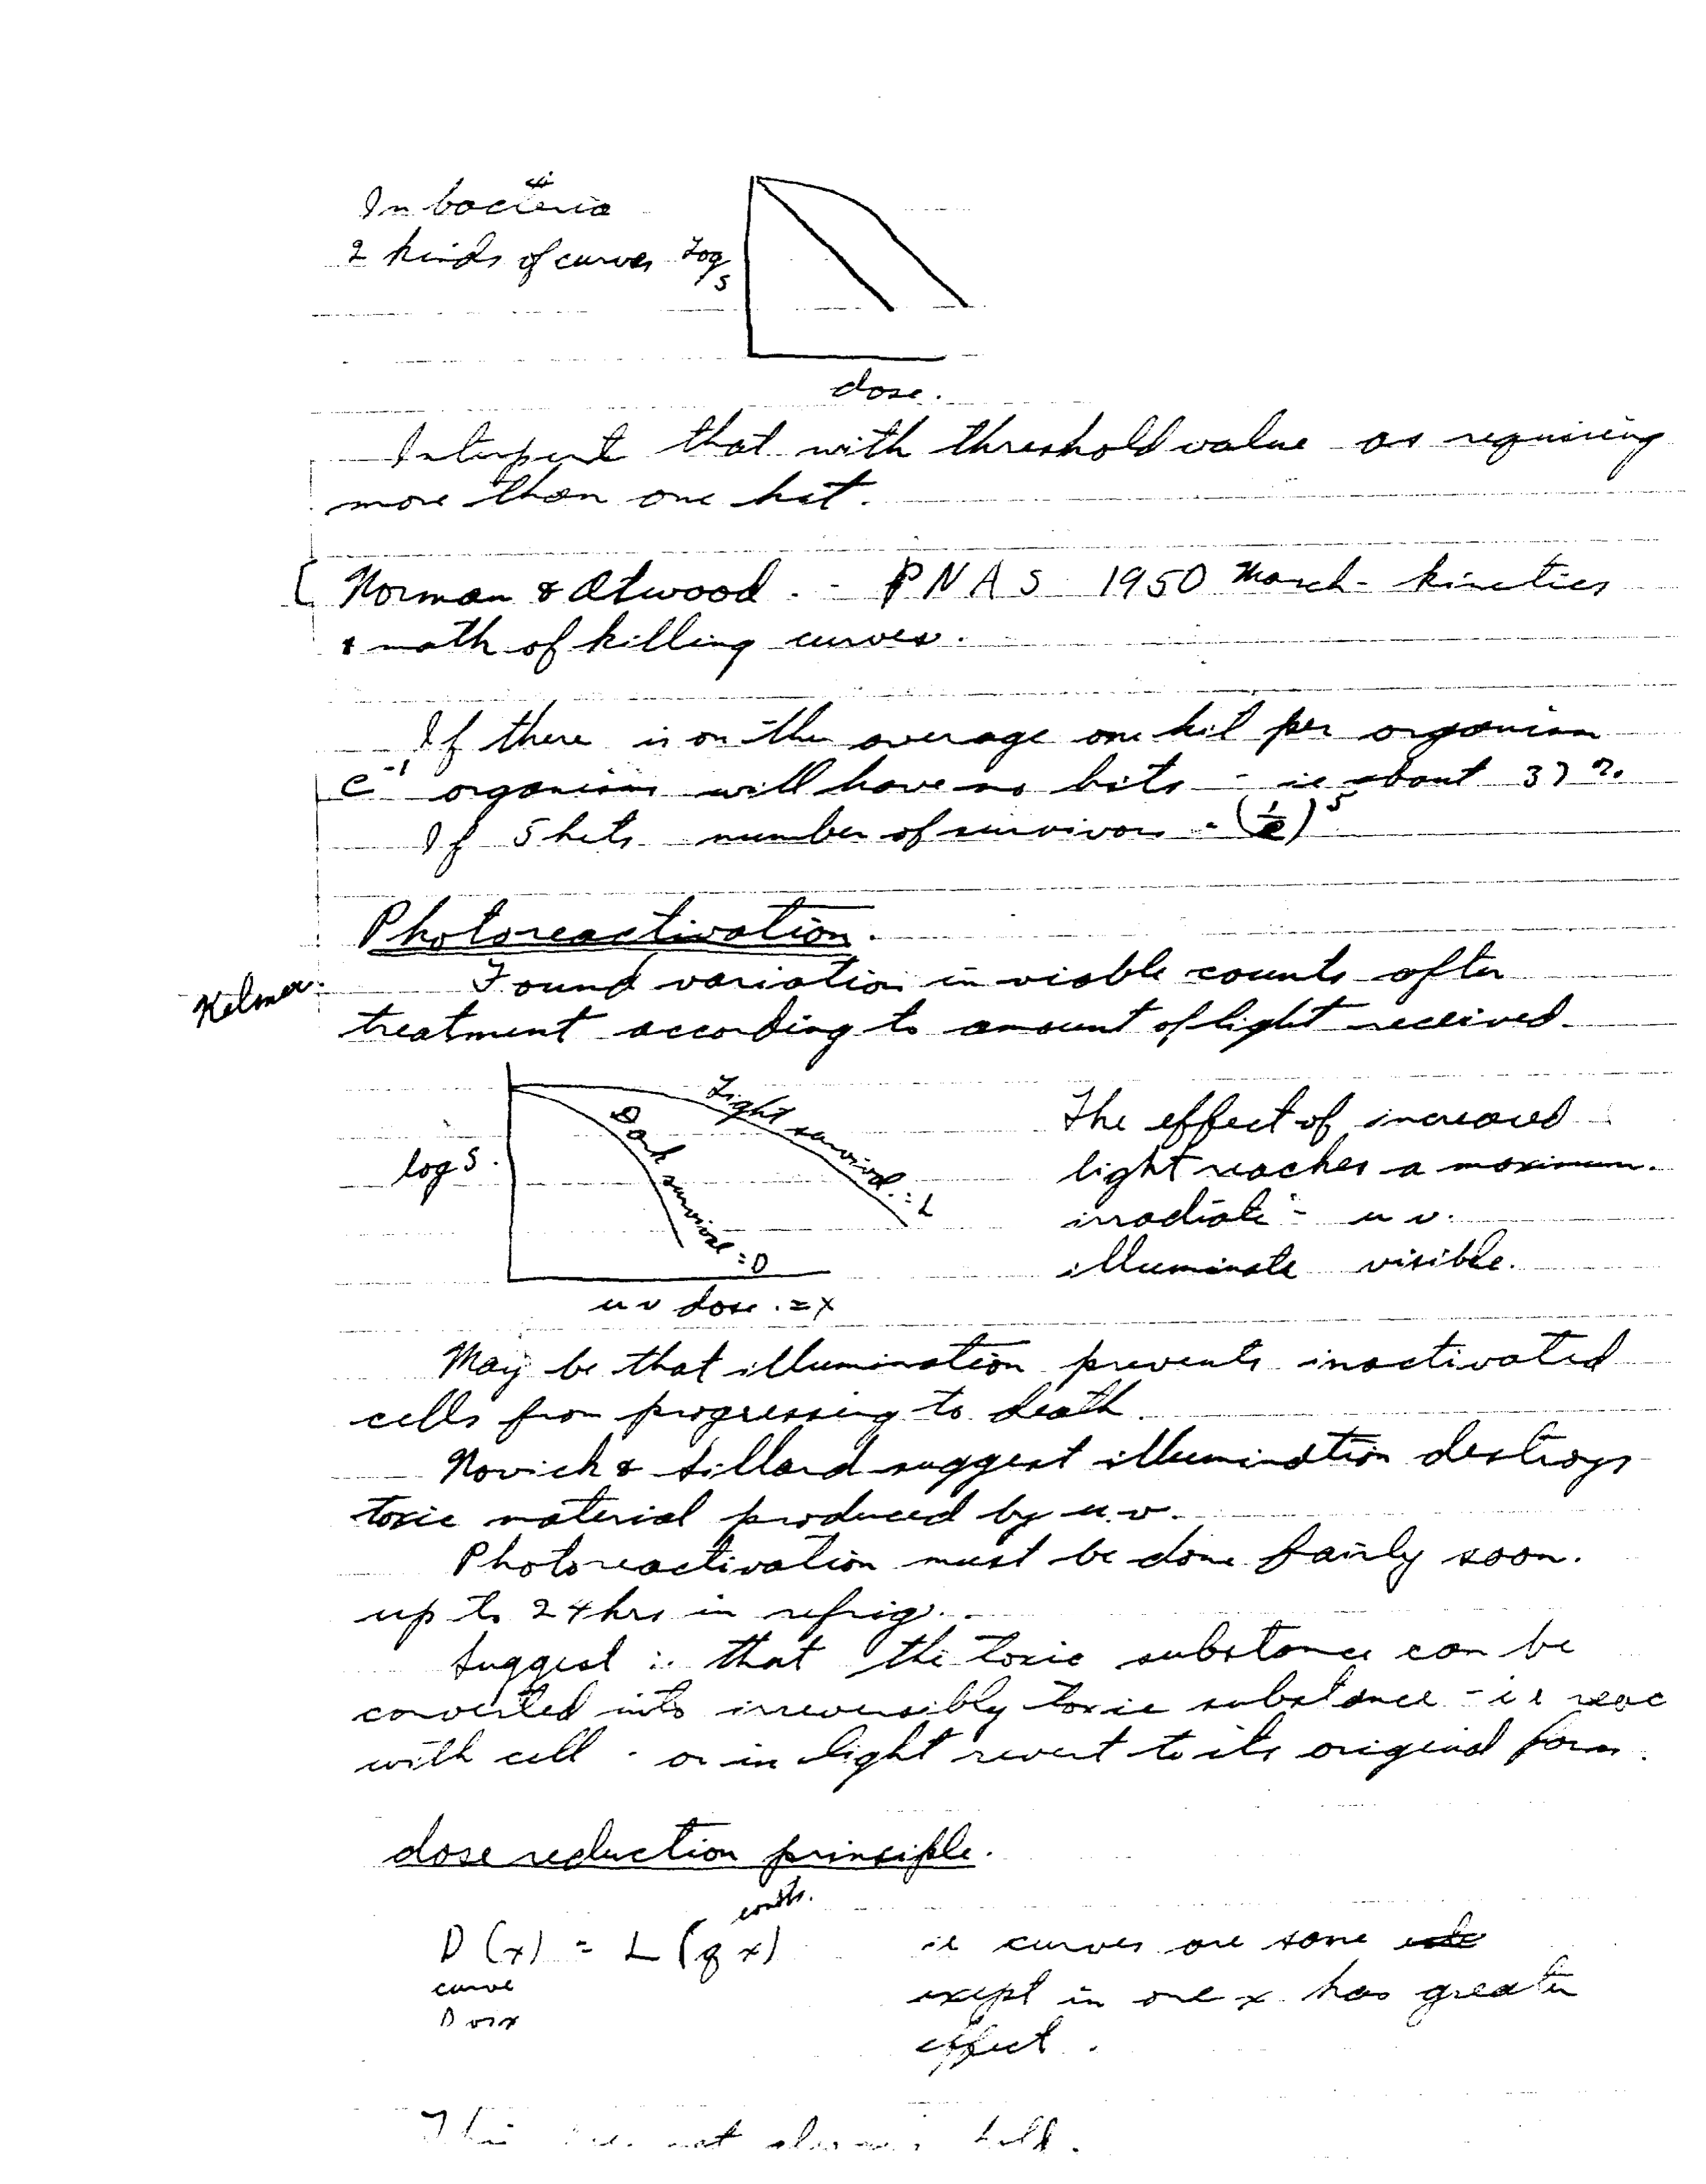 In bacteria
2 kinds of curves
Log S
dose.
Interpret that with threshold value as requiring
more than one hit.
[ Norman & Atwood. - PNAS 1950 March - kinetics
& math of killing curves.
If there is on the average one hit per organism
e⁻¹ organisms will have no hits - ie about 37%.
If 5 hits number of survivors = (1/e)⁵
Photoreactivation.
Kelner.
Found variation in viable counts after
treatment according to amount of light received.
log S.
Light survival. = L
Dark survival = D
uv dose. = x
The effect of increased
light reaches a maximum.
irradiate - uv.
illuminate visible.
May be that illumination prevents inactivated
cells from progressing to death.
Novick & Sillard suggest illumination destroys
toxic material produced by u.v.
Photoreactivation must be done fairly soon.
up to 24 hrs in refrig.
Suggest ∴ that the toxic substance can be
converted into irreversibly toxic substance - ie reac
with cell - or in light revert to its original form.
dose reduction principle.
consts.
D(x) = L(qx)
curve
D vs x
ie curves are same
exept in one x has greater
effect.
This not always hold.